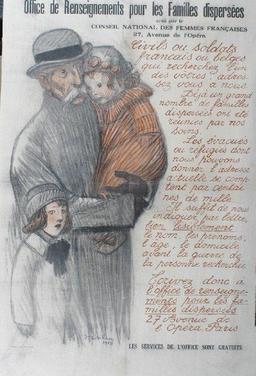 Office de Renseignements pour les Familles dispersées
créé par le
CONSEIL NATIONAL DES FEMMES FRANÇAISES
27, Avenue de l'Opéra
Civils ou soldats
français ou belges
qui recherchez l'un
des vôtres adres
sez vous a nous.
Déjà un grand
nombre de familles
dispersées ont été
réunies par nos
soins.
Les évacués
ou réfugiés dont
nous pouvons
donner l'adresse
actuelle se comp
tent par centai
nes de mille.
Il suffit de nous
indiquer par lettre,
bien lisiblement
le nom, les prénoms,
l'âge, le domicile
avant la guerre de
la personne recherchée
Ecrivez donc à
l'office de renseigne
ments pour les fa
milles dispersées
27 Avenue de
l'Opéra Paris
LES SERVICES DE L'OFFICE SONT GRATUITS